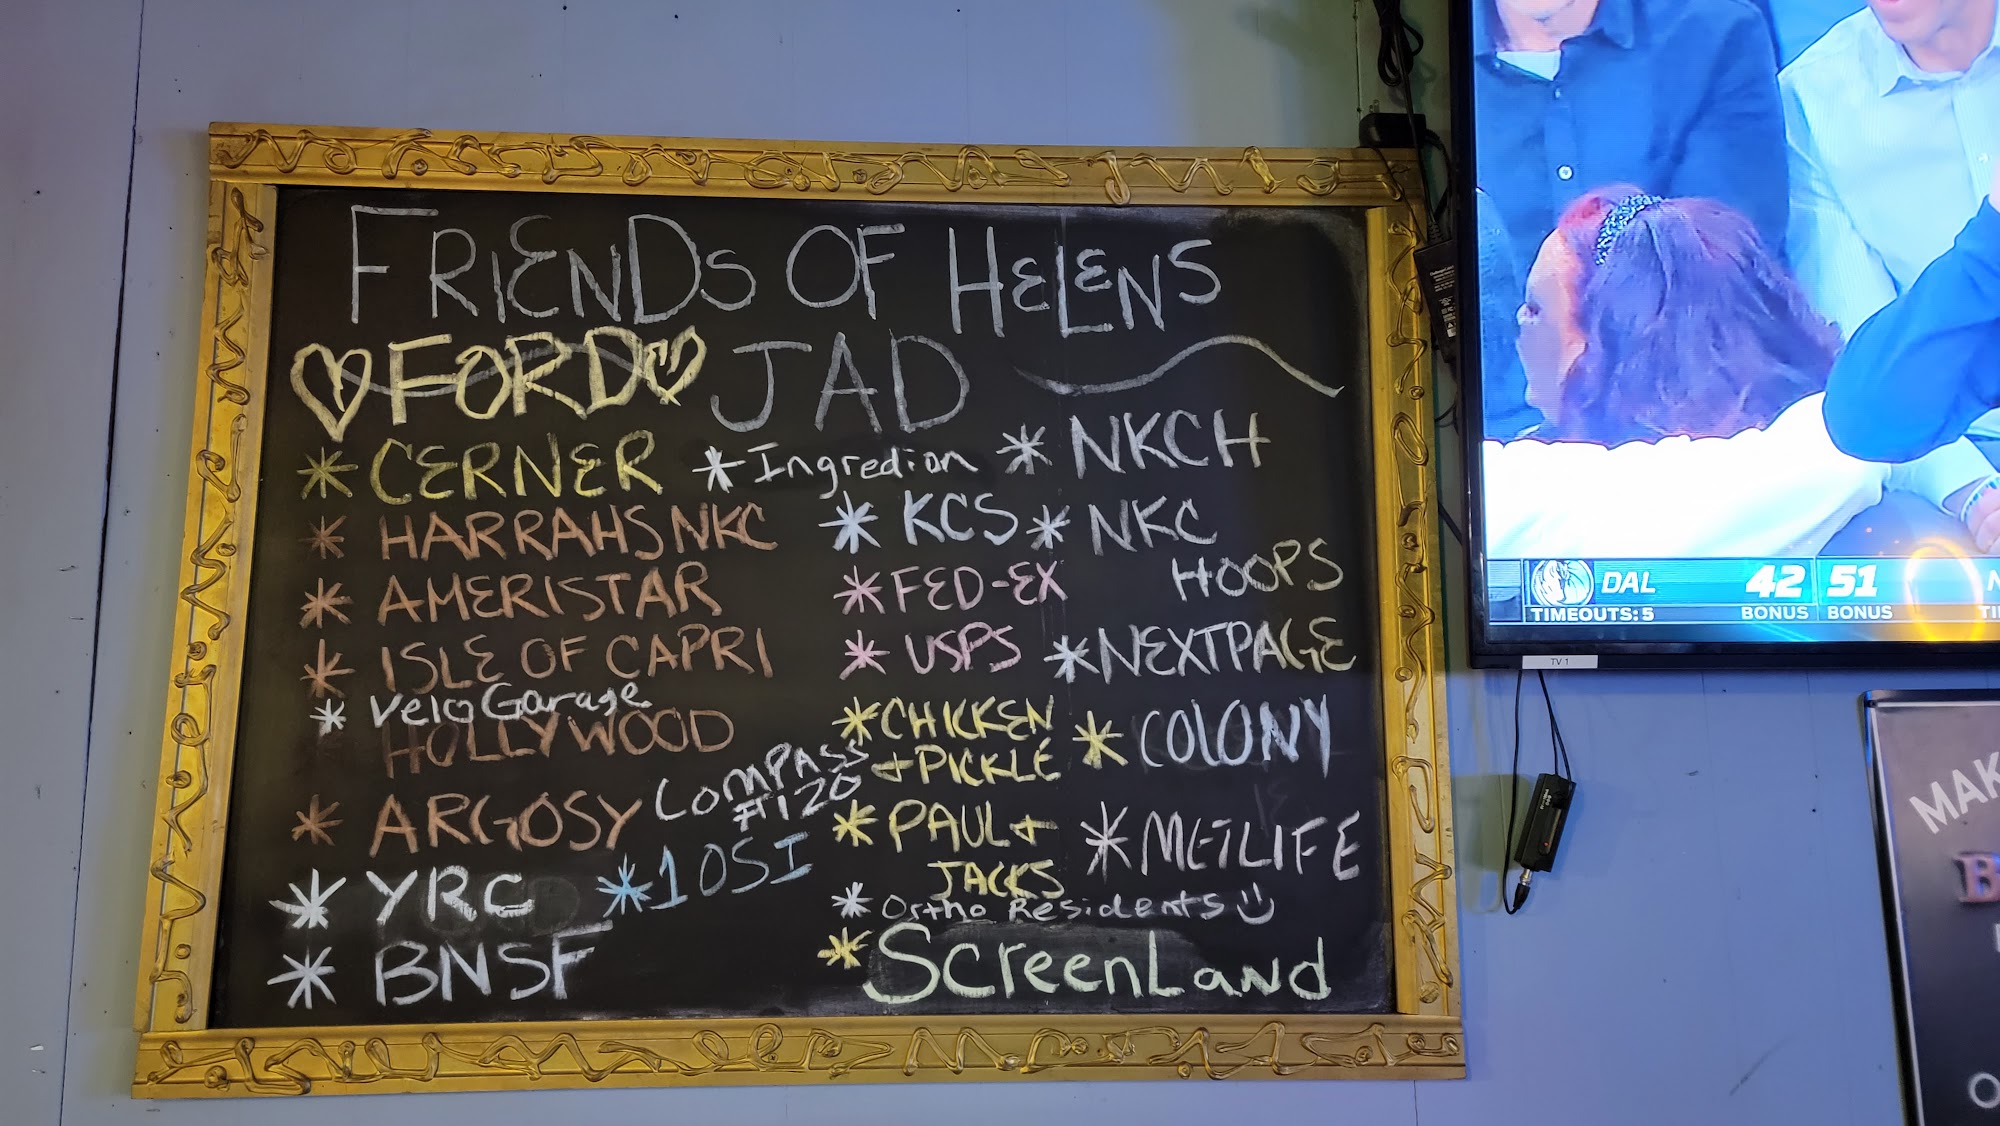 FRIENDS OF HELENS
♡ FORD ♡ JAD
* CERNER
* HARRAHS NKC
* AMERISTAR
* ISLE OF CAPRI
* Velo Garage
HOLLYWOOD
* ARGOSY
COMPASS
#120
* YRC
* 10SI
* BNSF
* Ingredion
* KCS
* FED-EX
* USPS
* CHICKEN
+ PICKLE
* PAUL +
JACKS
* Ortho Residents
* ScreenLand
* NKCH
* NKC
HOOPS
* NEXTPAGE
* COLONY
* METLIFE
DAL 42 51
TIMEOUTS: 5 BONUS BONUS
TV 1
MAK
B